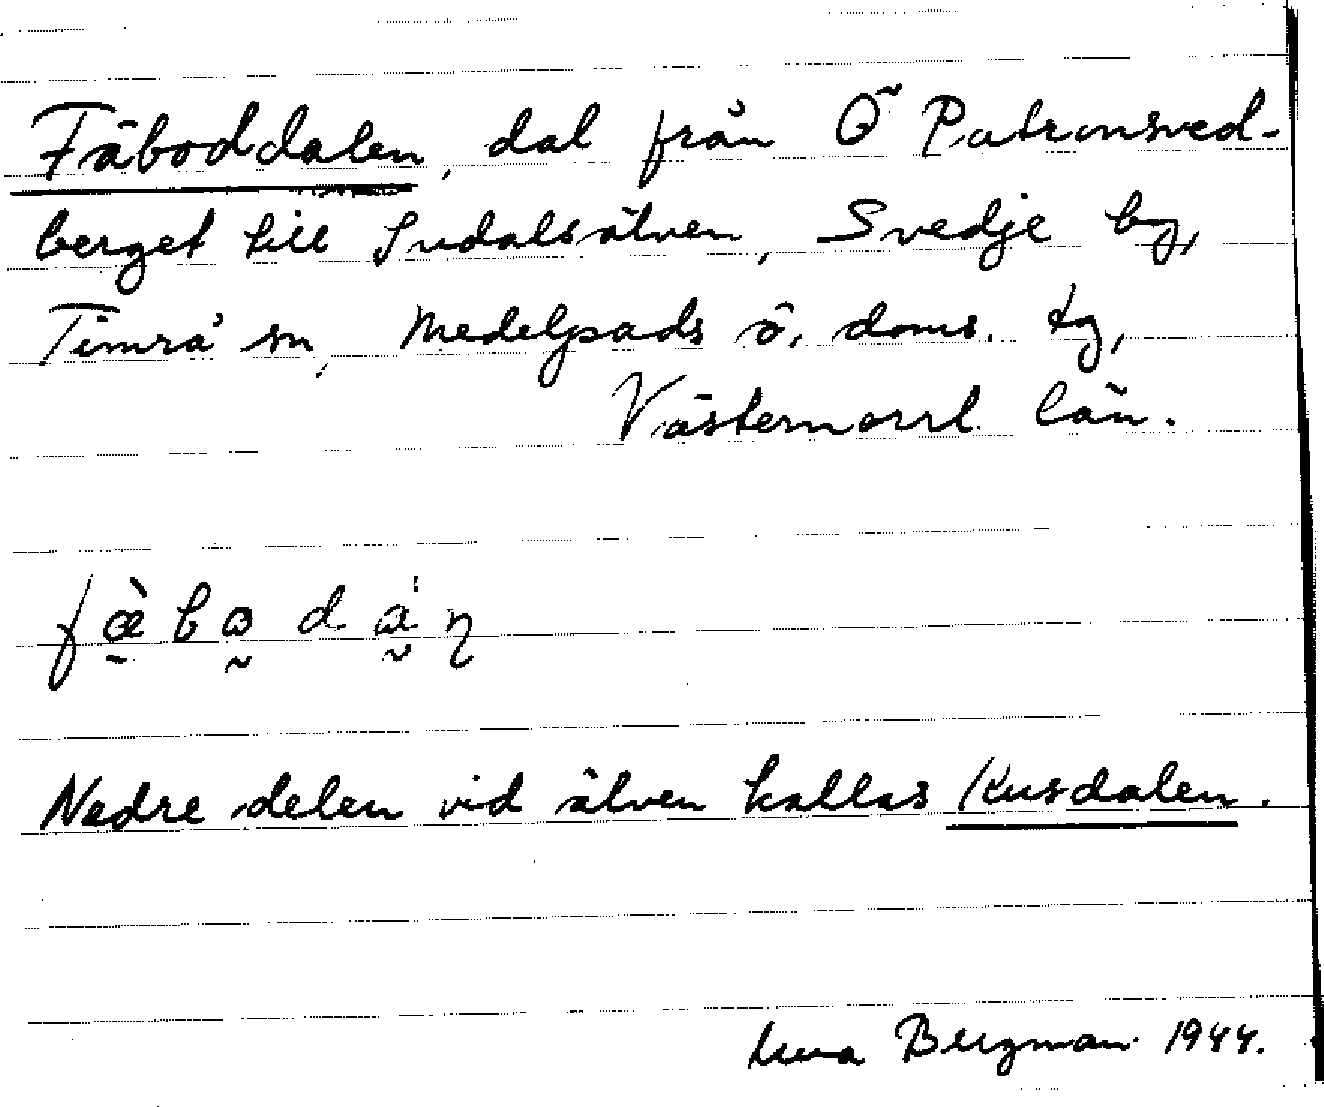 Fäboddalen, dal från Ö Patronsved-
berget till Indalsälven, Svedje by,
Timrå sn, Medelpads ö. doms. tg,
Västernorrl. län.
Nedre delen vid älven kallas Kusdalen.
Bergman 1944.